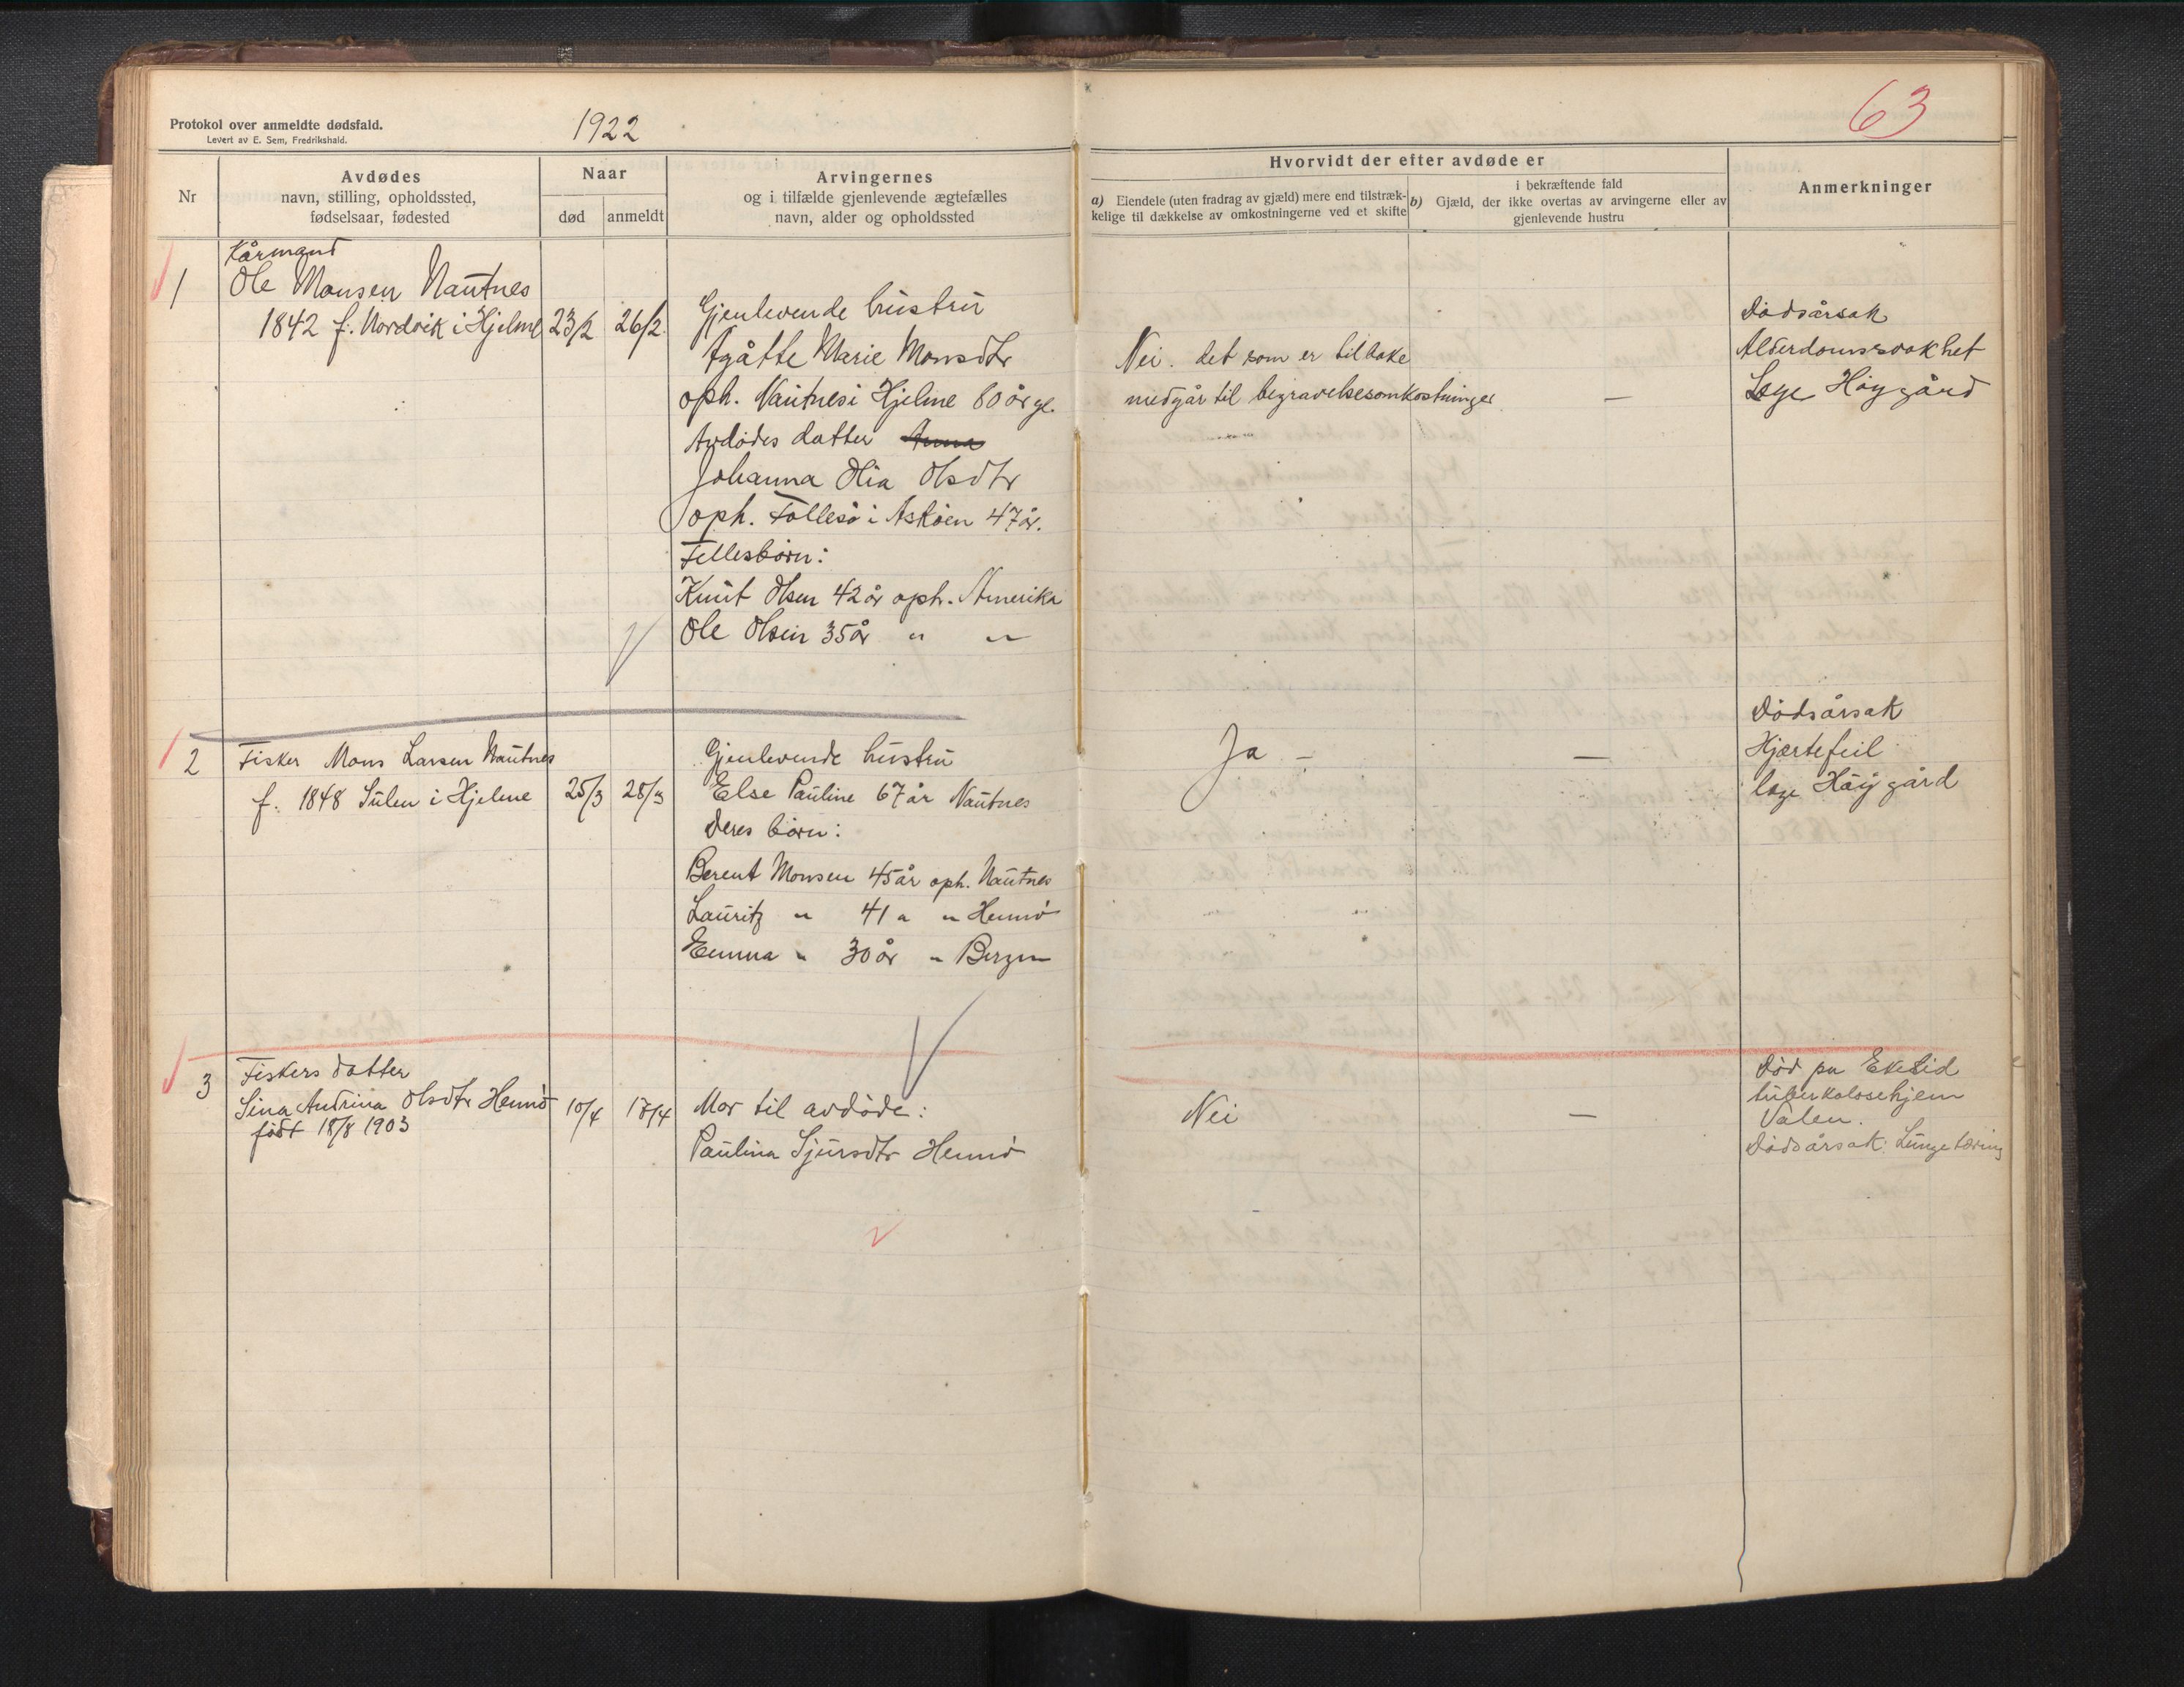 Protokol over anmeldte dødsfald.
Levert av E. Sem, Fredrikshald.
1922
63
Nr
Avdødes
navn, stilling, opholdssted,
fødselsaar, fødested
Naar
død
anmeldt
Arvingernes
og i tilfælde gjenlevende ægtefælles
navn, alder og opholdssted
Hvorvidt der efter avdøde er
a) Eiendele (uten fradrag av gjæld) mere end tilstræk-
kelige til dækkelse av omkostningerne ved et skifte
i bekræftende fald
b) Gjæld, der ikke overtas av arvingerne eller av
gjenlevende hustru
Anmerkninger
1
Kårmand
Ole Monsen Nautnes
1842 f. Nordvik i Hjelme
23/2
26/2
Gjenlevende hustru
Agåtte Marie Monsdtr
oph. Nautnes i Hjelme 80 år gl.
Avdødes datter Anna
Johanna Olia Olsdtr
oph. Follesø i Askøen 47 år.
Fellesbørn:
Knut Olsen 42 år oph. Amerika
Ole Olsen 35 år " "
Nei. det som er tilbake
medgår til begravelsesomkostninger
—
Dødsårsak
Alderdomssvakhet
Læge Høygård
2
Fisker Mons Larsen Nautnes
f. 1848 Sulen i Hjelme
25/3
28/3
Gjenlevende hustru
Else Pauline 67 år Nautnes
Deres børn:
Berent Monsen 45 år oph. Nautnes
Lauritz " 41 " " Hernø
Emma " 30 år " Bergen
Ja —
—
Dødsårsak
Hjertefeil
læge Høygård
3
Fiskers datter
Sina Andrina Olsdtr Hennø
født 18/8 1903
10/4
18/4
Mor til avdøde:
Paulina Sjursdtr Hennø
Nei
—
Død på Ekelid
tuberkolosehjem
Valen.
Dødsårsak: Lungetæring